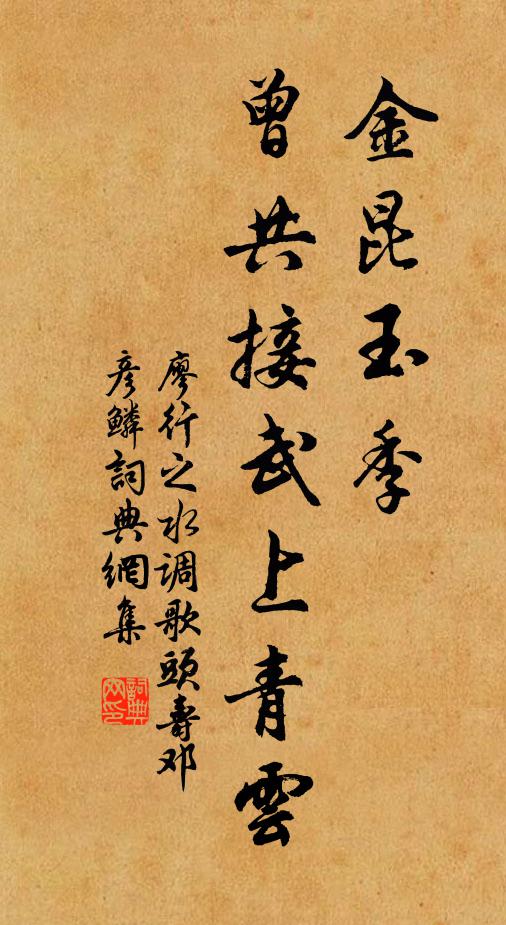 金昆玉季
曾共接武上青雲
廖行之水調歌頭壽邓
彦鱗詞典網集
詞典
网印